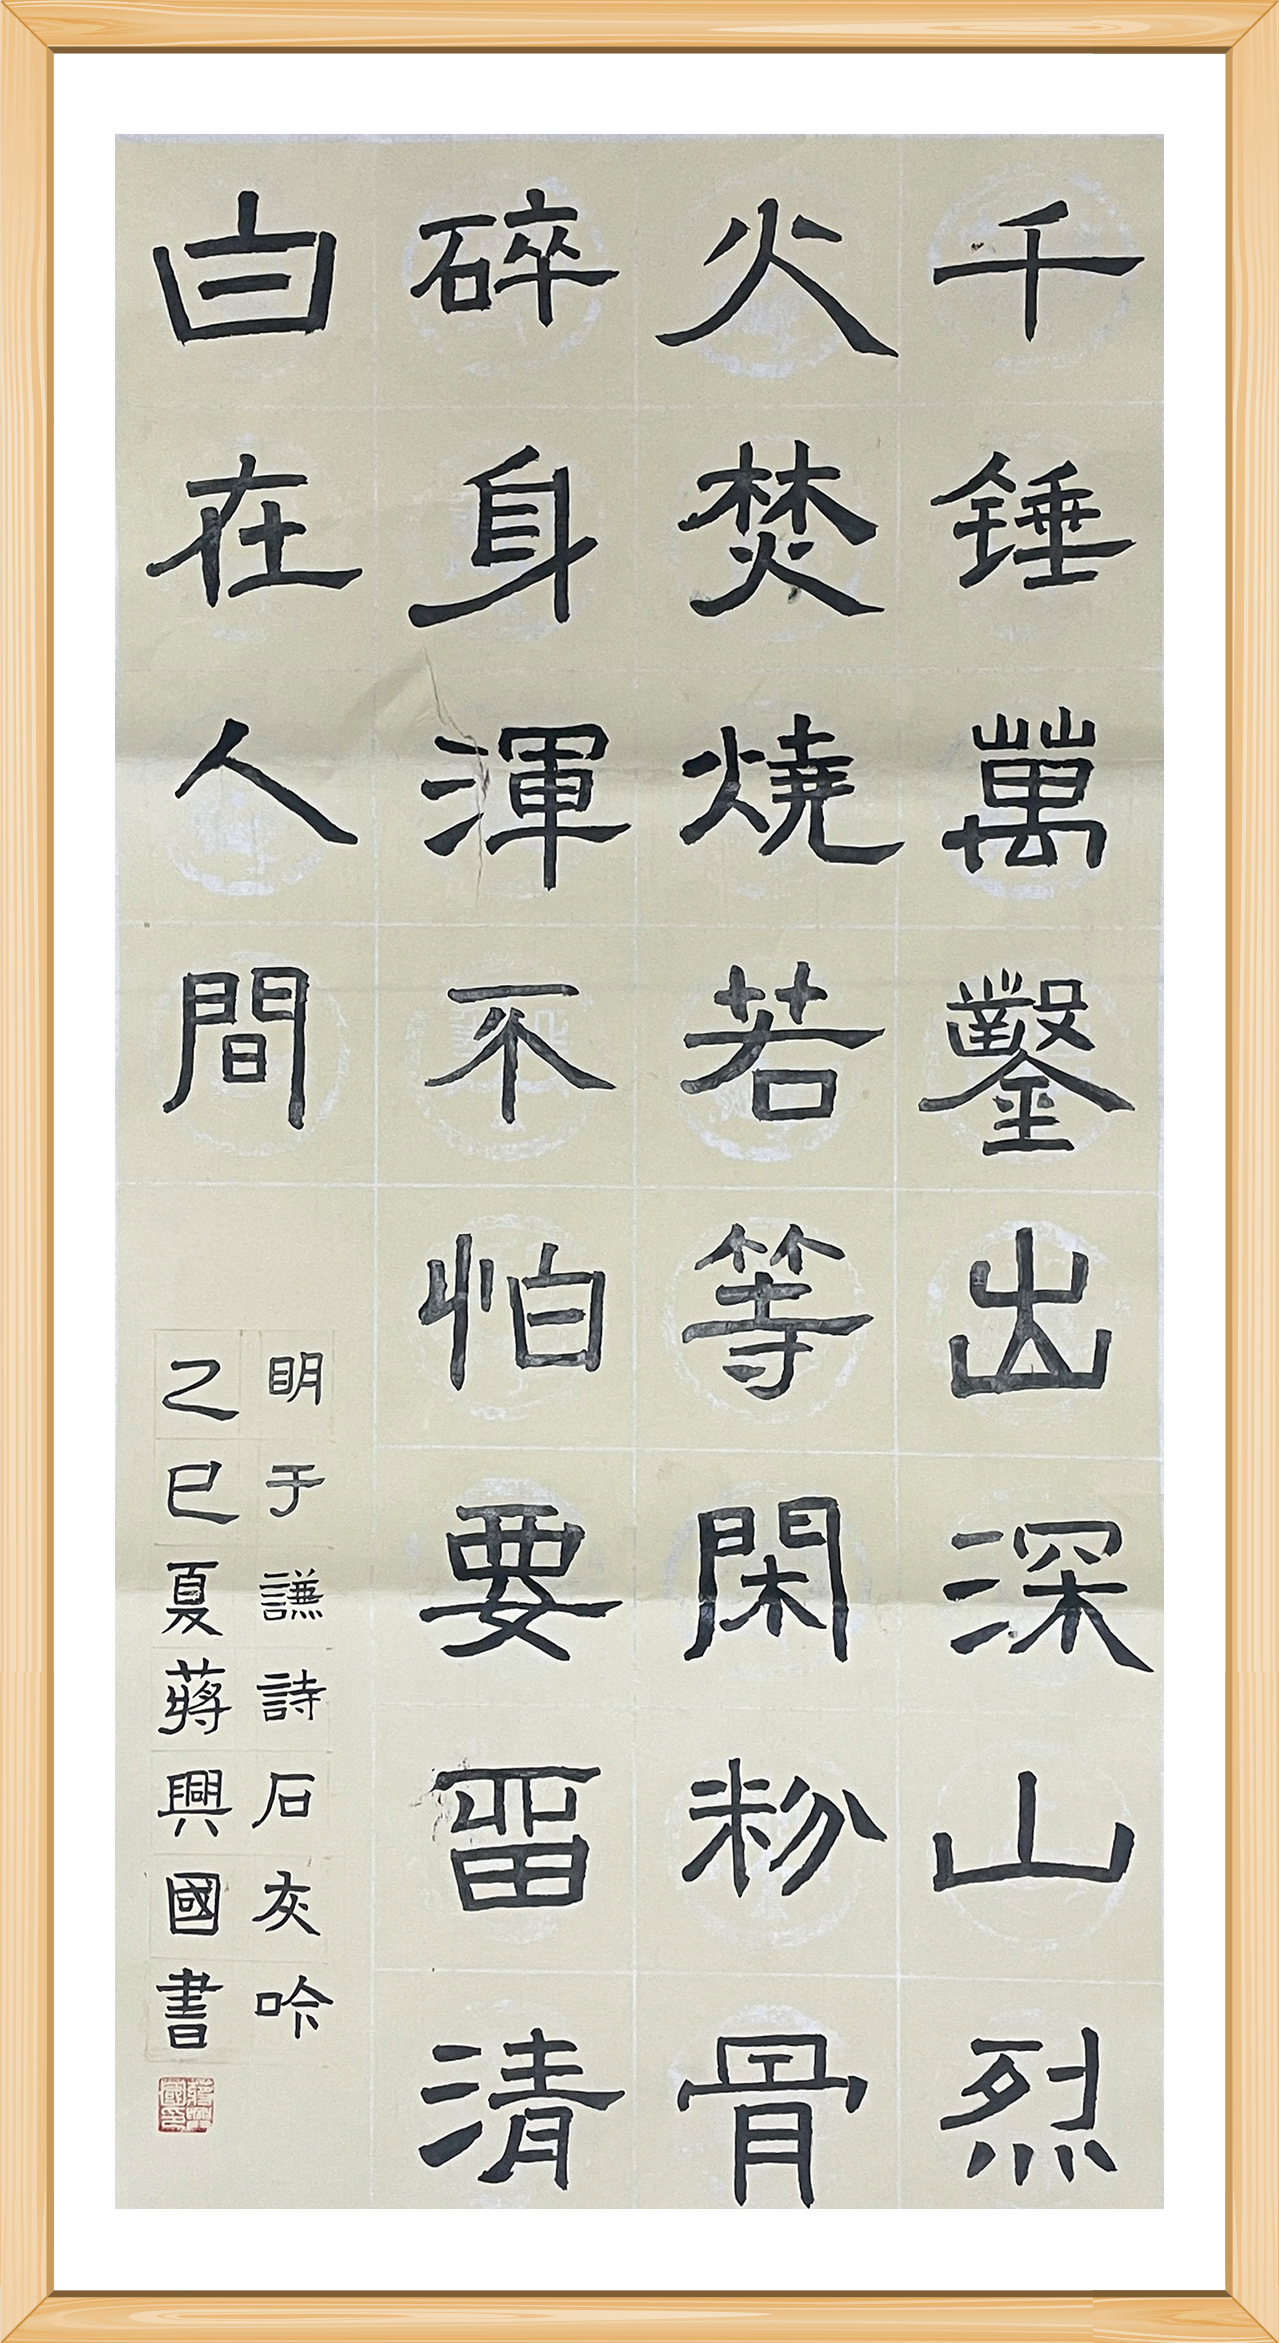 千锤萬鑿出深山烈
火焚燒若等閑粉骨
碎身渾不怕要留清
白在人間
明于謙詩石灰吟
乙巳夏蔣興國書